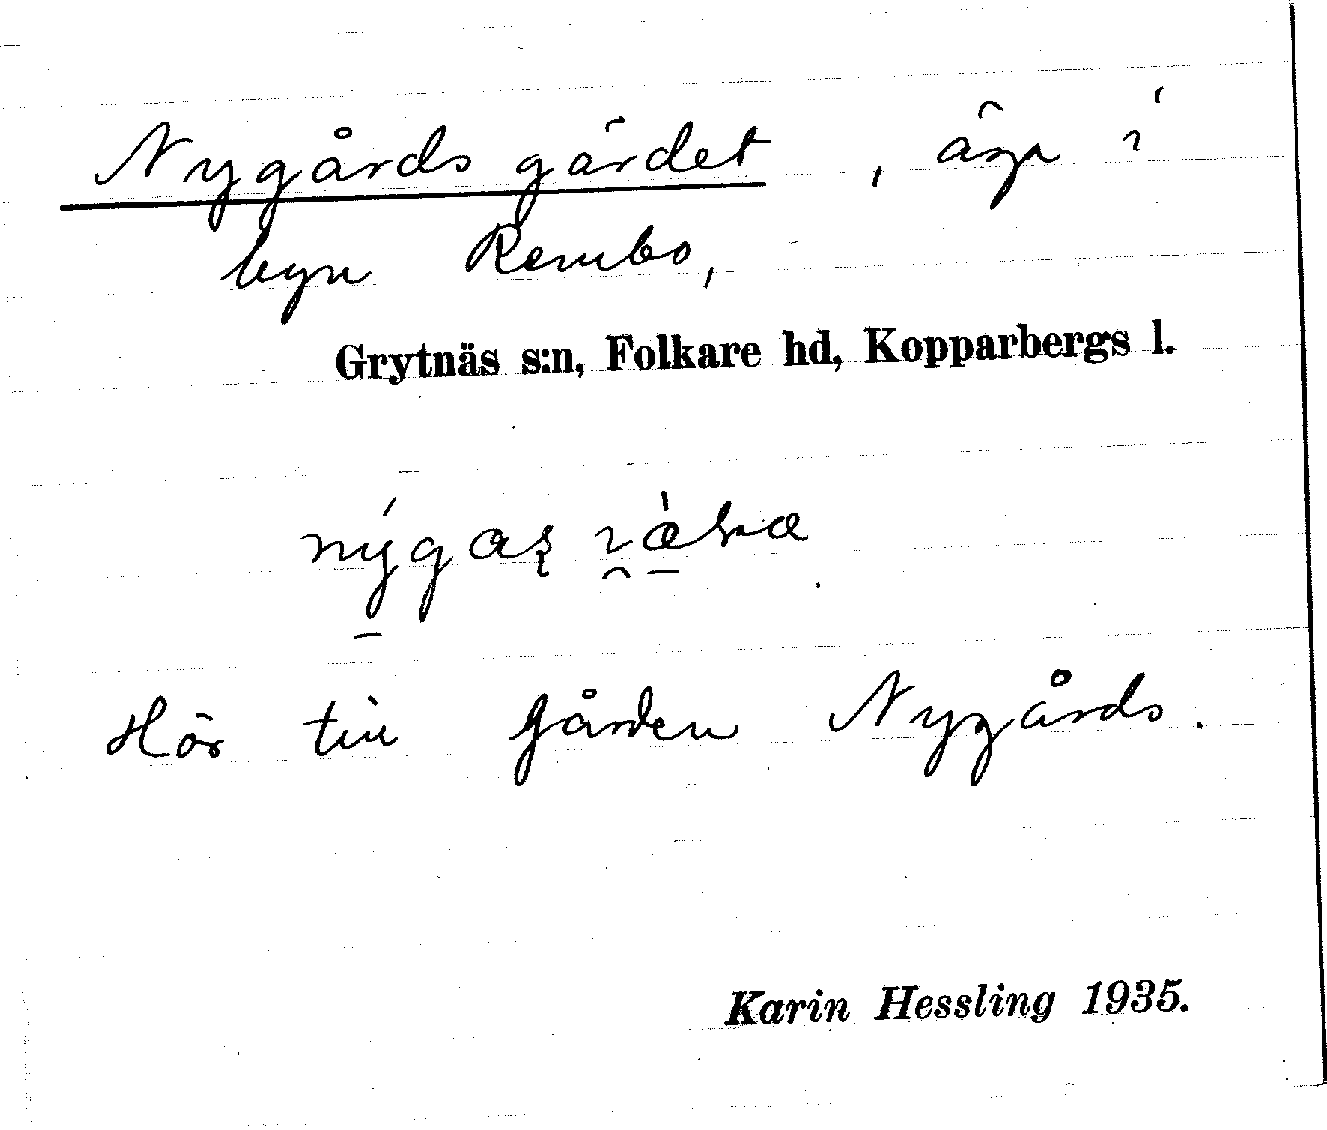 Nygårds gärdet, äga i
byn Rembo,
Grytnäs s:n, Folkare hd, Kopparbergs l.
Hör till gården Nygårds.
Karin Hessling 1935.